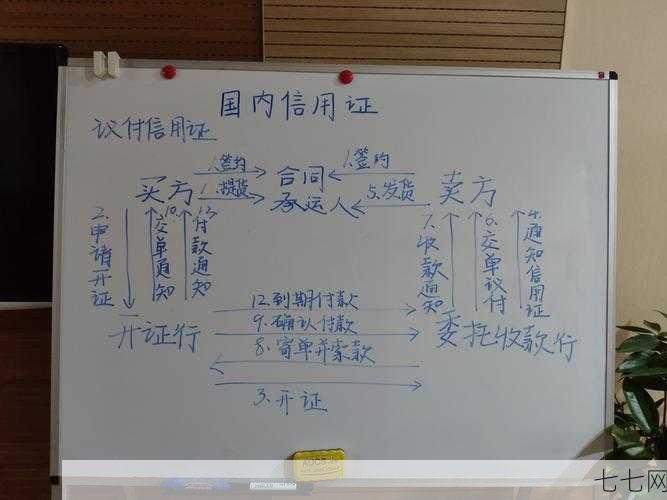 国内信用证
议付信用证
1.签约
1.签约
合同
买方
卖方
1.提货
承运人
5.发货
2.申请开证
10.交单通知
13.付款通知
7.收款通知
6.交单议付
4.通知信用证
12.到期付款
9.确认付款
开证行
委托收款行
8.寄单并索款
3.开证
七七网